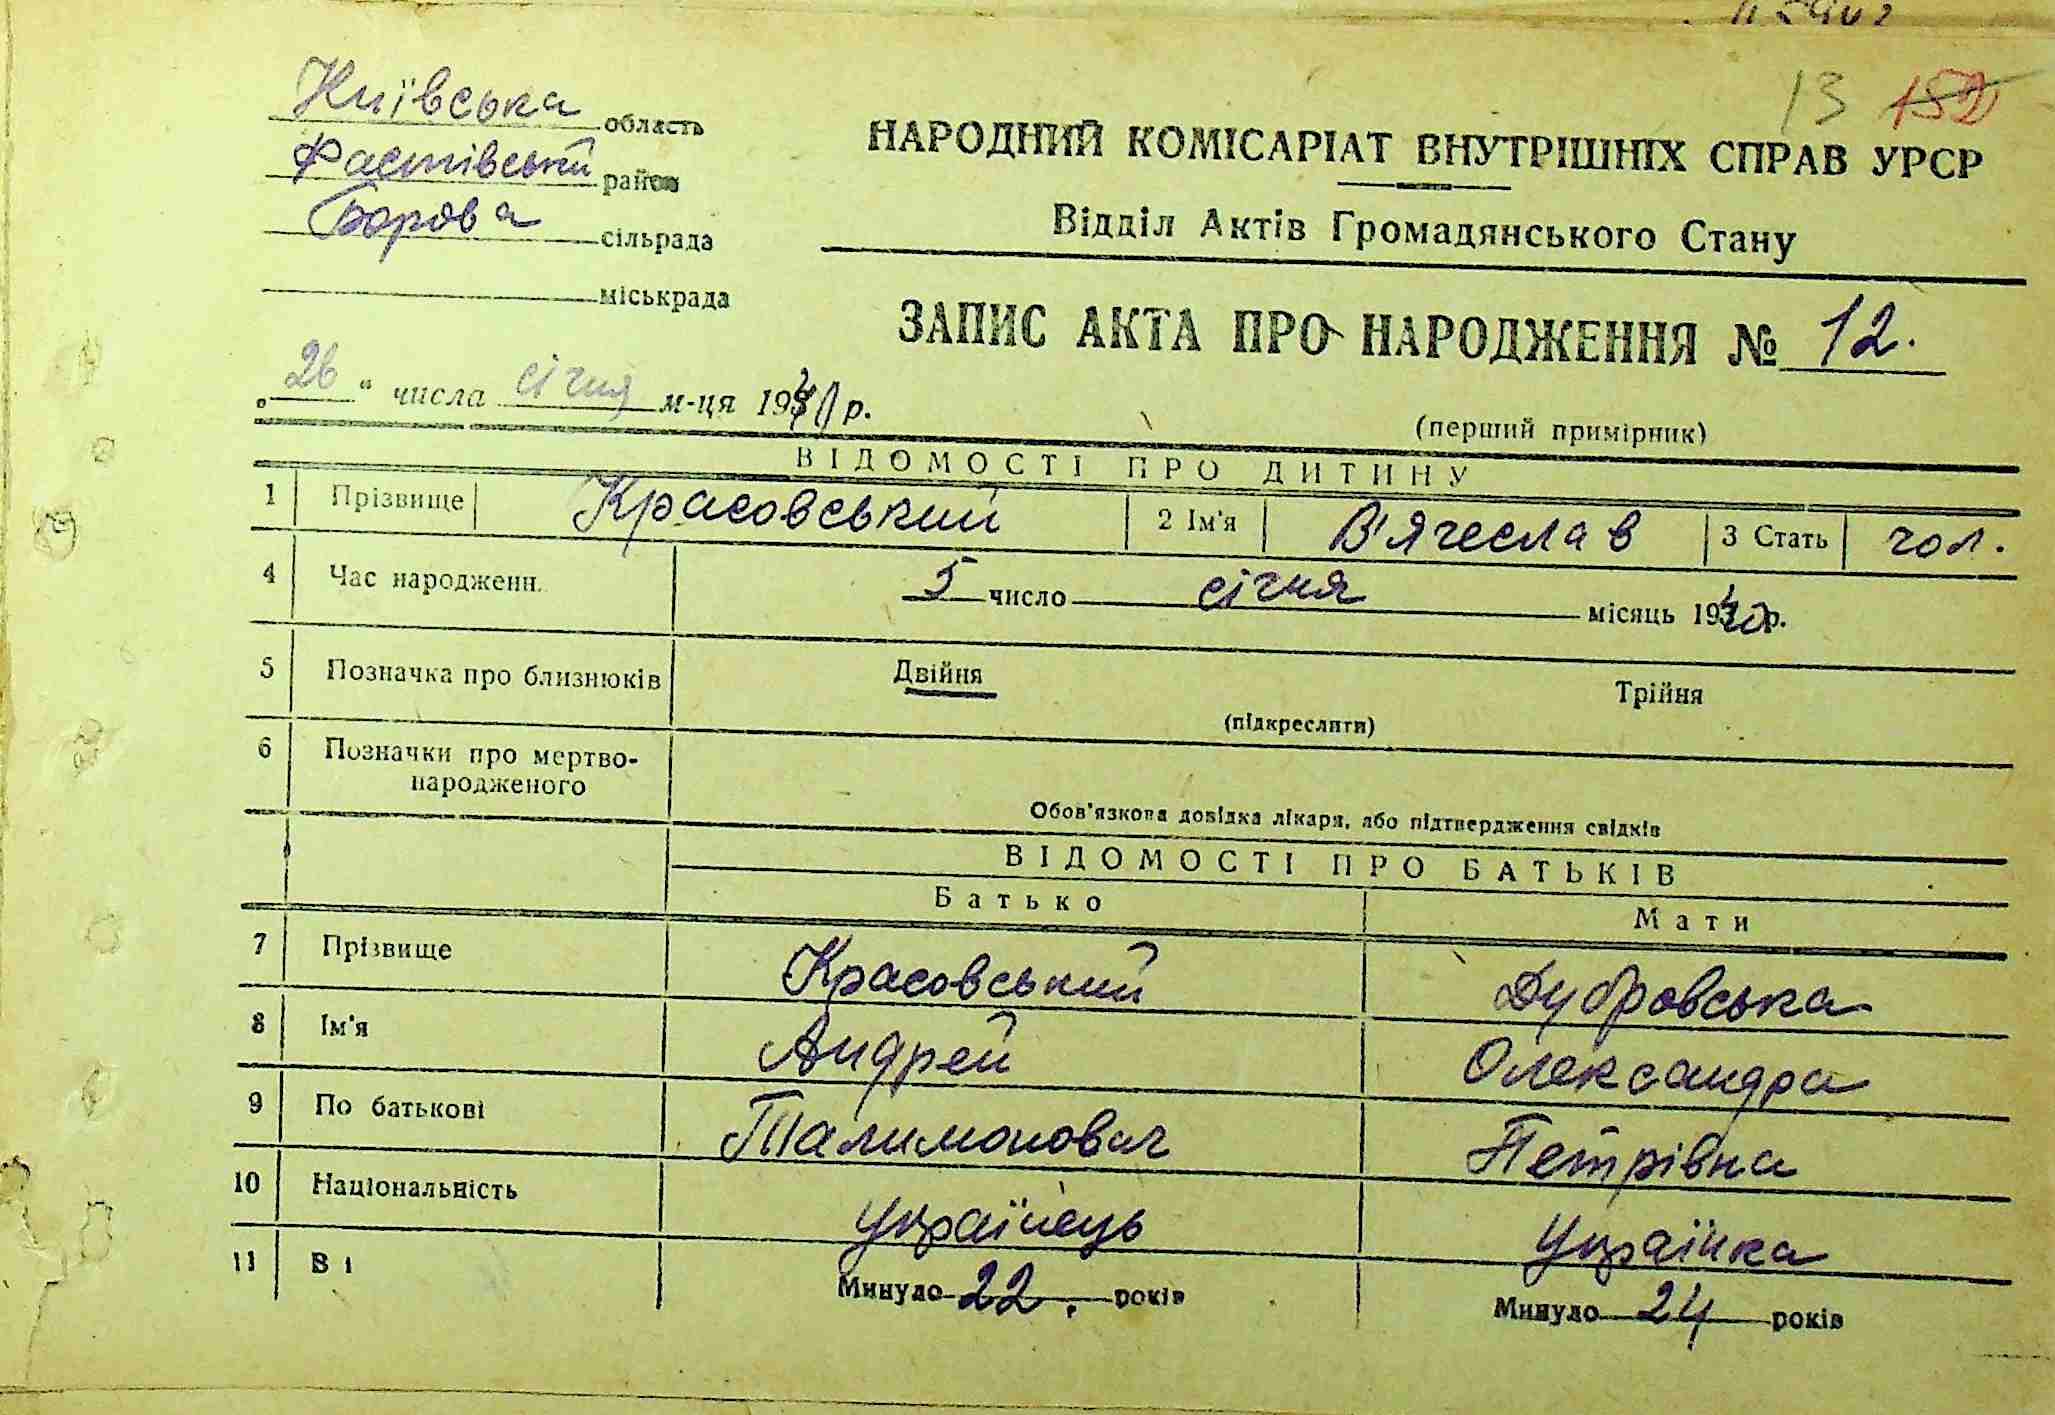 13 152
Київська область
Фастівський район
Борова сільрада
міськрада
НАРОДНИЙ КОМІСАРІАТ ВНУТРІШНІХ СПРАВ УРСР
Відділ Актів Громадянського Стану
ЗАПИС АКТА ПРО НАРОДЖЕННЯ № 12.
„26“ числа січня м-ця 1941 р.
(перший примірник)
ВІДОМОСТІ ПРО ДИТИНУ
1 Прізвище Красовський 2 Ім'я В'ячеслав 3 Стать чол.
4 Час народженн. 5 число січня місяць 1940 р.
5 Позначка про близнюків Двійня Трійня
(підкреслити)
6 Позначки про мертво-
народженого
Обов'язкова довідка лікаря, або підтвердження свідків
ВІДОМОСТІ ПРО БАТЬКІВ
Батько Мати
7 Прізвище Красовський Дубровська
8 Ім'я Андрей Олександра
9 По батькові Талимонович Петрівна
10 Національність Українець Українка
11 Ві Минуло 22. років Минуло 24 років